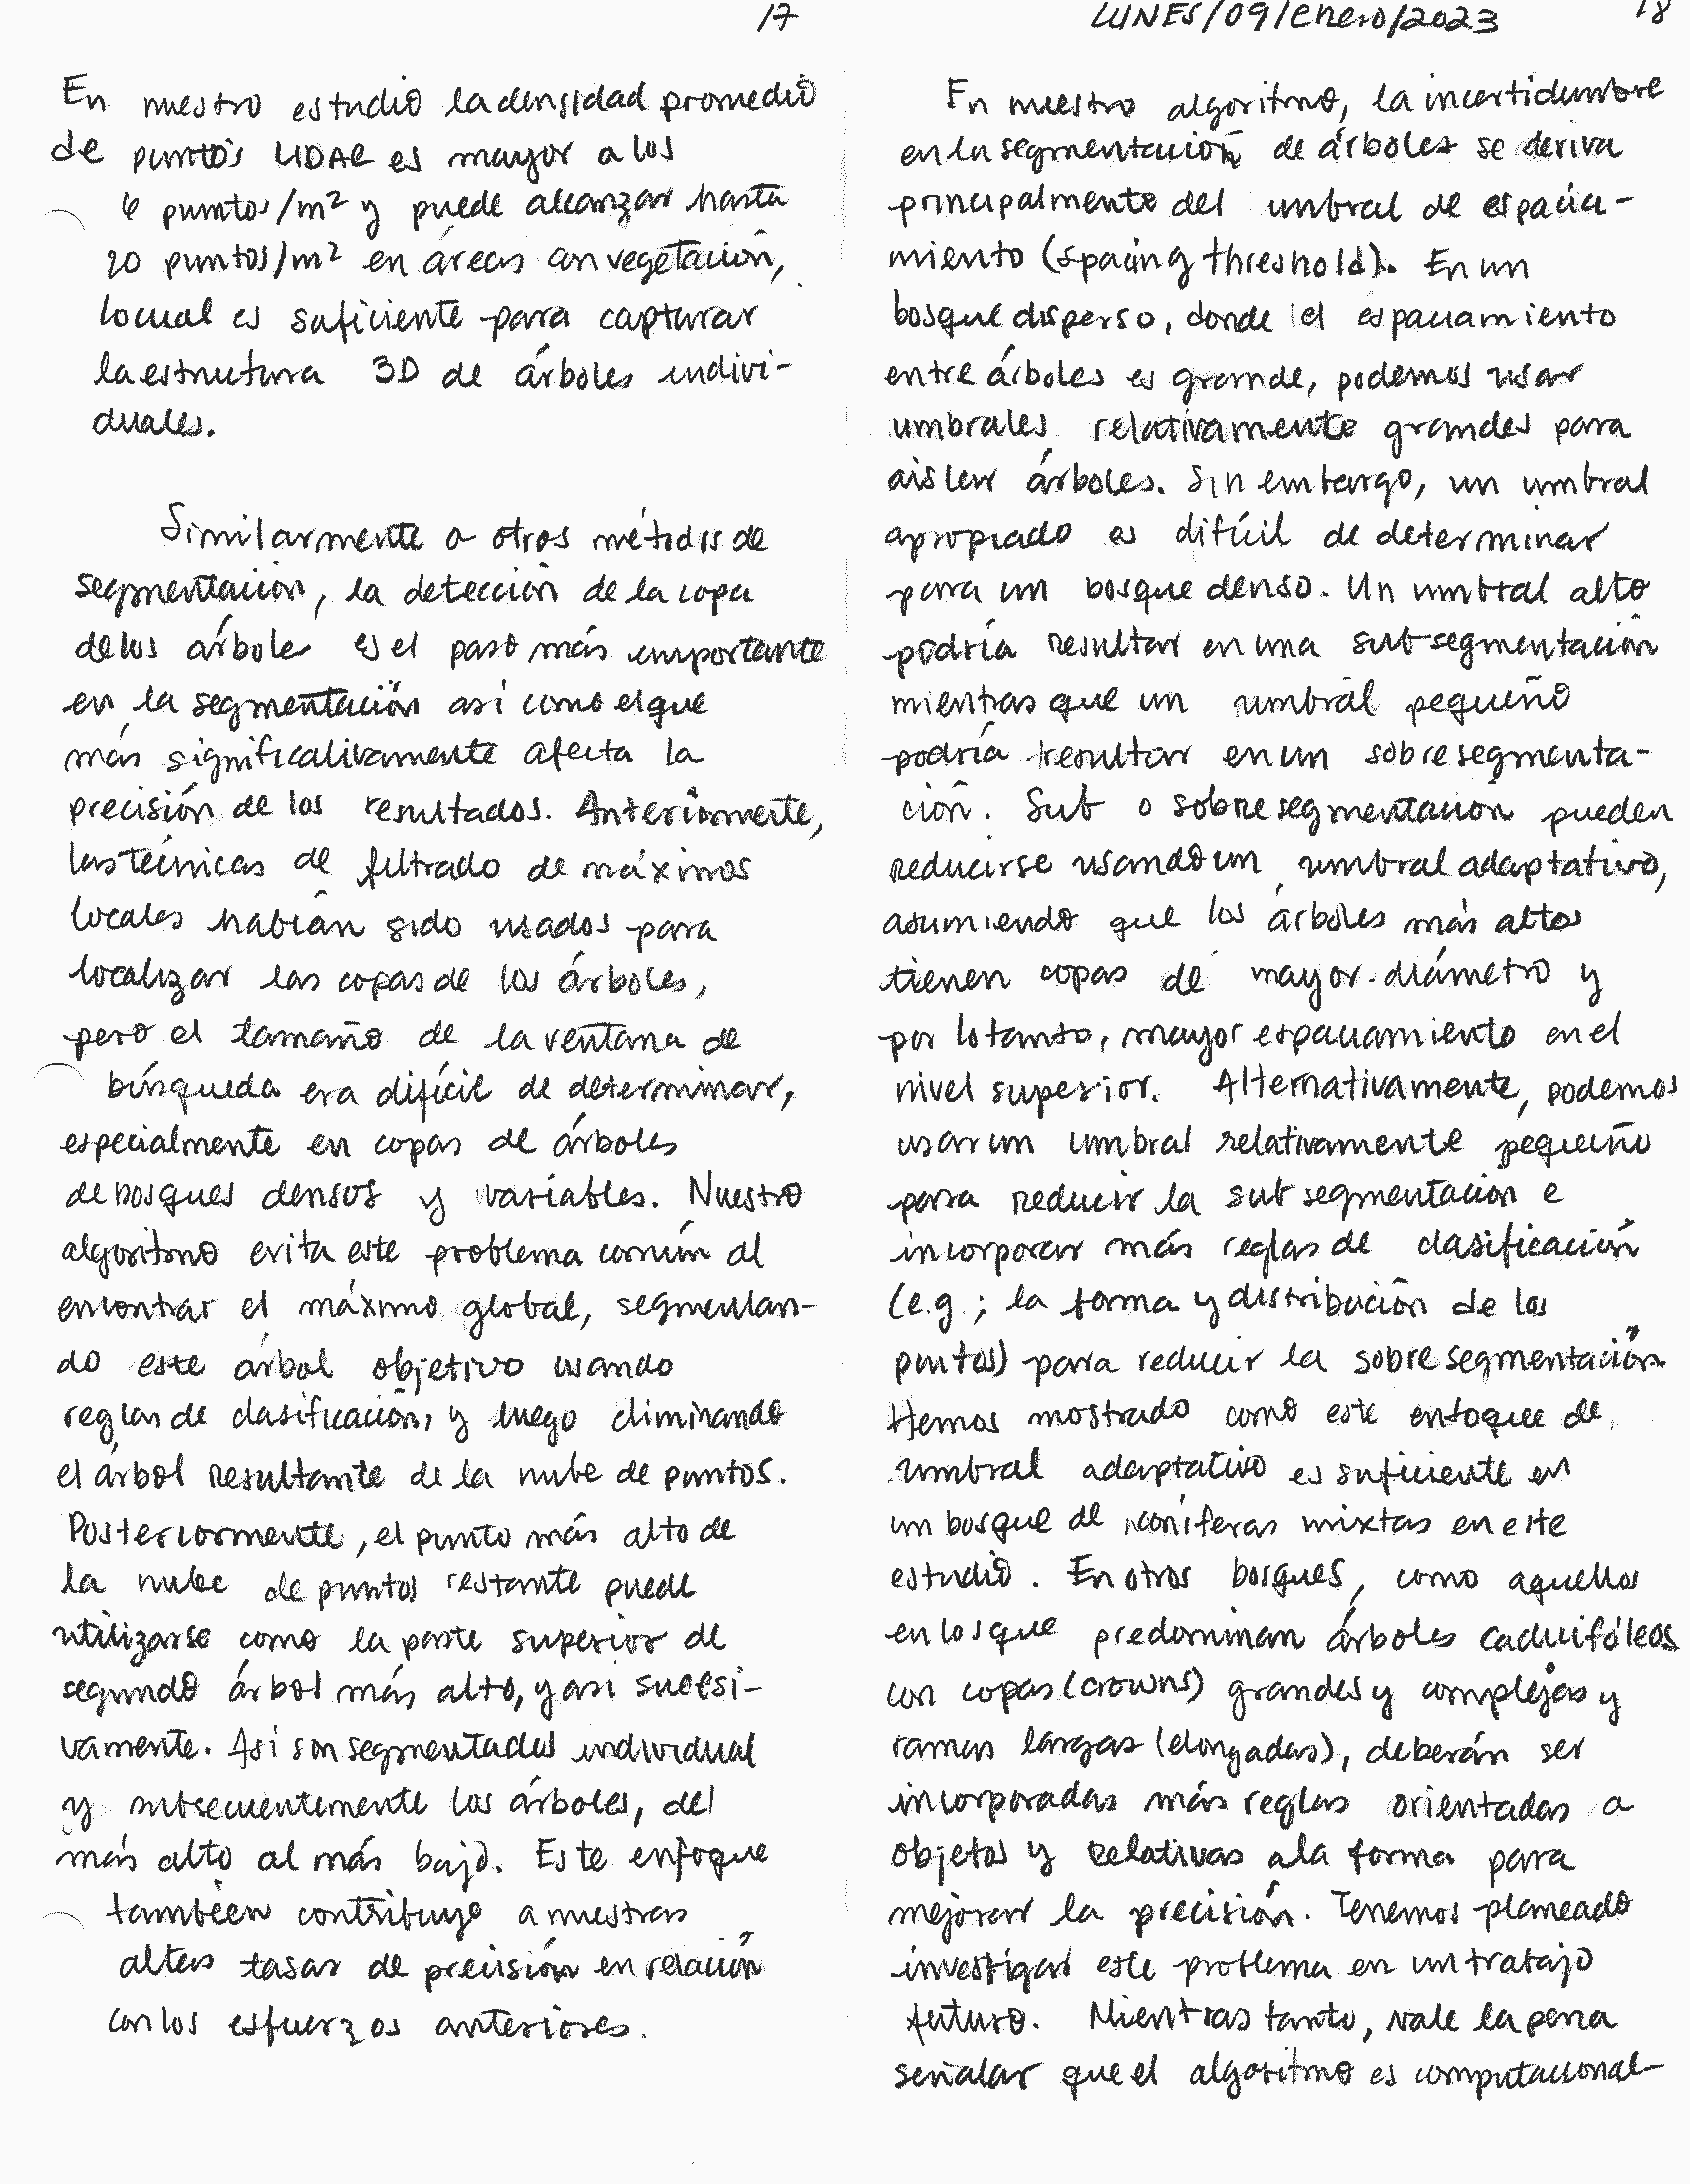 17
En nuestro estudio la densidad promedio
de puntos LIDAR es mayor a los
6 puntos/m² y puede alcanzar hasta
20 puntos/m² en áreas con vegetación,
lo cual es suficiente para capturar
la estructura 3D de árboles indivi-
duales.
Similarmente a otros métodos de
segmentación, la detección de la copa
de los árboles es el paso más importante
en la segmentación así como el que
más significativamente afecta la
precisión de los resultados. Anteriormente,
las técnicas de filtrado de máximos
locales habían sido usados para
localizar las copas de los árboles,
pero el tamaño de la ventana de
búsqueda era difícil de determinar,
especialmente en copas de árboles
de bosques densos y variables. Nuestro
algoritmo evita este problema común al
encontrar el máximo global, segmentan-
do este árbol objetivo usando
reglas de clasificación, y luego eliminando
el árbol resultante de la nube de puntos.
Posteriormente, el punto más alto de
la nube de puntos restante puede
utilizarse como la parte superior de
segundo árbol más alto, y así sucesi-
vamente. Así son segmentados individual
y subsecuentemente los árboles, del
más alto al más bajo. Este enfoque
también contribuye a nuestras
altas tasas de precisión en relación
con los esfuerzos anteriores.
LUNES/09/enero/2023 18
En nuestro algoritmo, la incertidumbre
en la segmentación de árboles se deriva
principalmente del umbral de espacia-
miento (spacing threshold). En un
bosque disperso, donde el espaciamiento
entre árboles es grande, podemos usar
umbrales relativamente grandes para
aislar árboles. Sin embargo, un umbral
apropiado es difícil de determinar
para un bosque denso. Un umbral alto
podría resultar en una subsegmentación
mientras que un umbral pequeño
podría resultar en un sobresegmenta-
ción. Sub o sobresegmentación pueden
reducirse usando un umbral adaptativo,
asumiendo que los árboles más altos
tienen copas de mayor diámetro y
por lo tanto, mayor espaciamiento en el
nivel superior. Alternativamente, podemos
usar un umbral relativamente pequeño
para reducir la subsegmentación e
incorporar más reglas de clasificación
(e.g; la forma y distribución de los
puntos) para reducir la sobresegmentación
Hemos mostrado como este enfoque de
umbral adaptativo es suficiente en
un bosque de coníferas mixtas en este
estudio. En otros bosques, como aquellos
en los que predominan árboles caducifóleos
con copas (crowns) grandes y complejas y
ramas largas (elongadas), deberán ser
incorporadas más reglas orientadas a
objetos y relativas a la forma para
mejorar la precisión. Tenemos planeado
investigar este problema en un trabajo
futuro. Mientras tanto, vale la pena
señalar que el algoritmo es computacional-